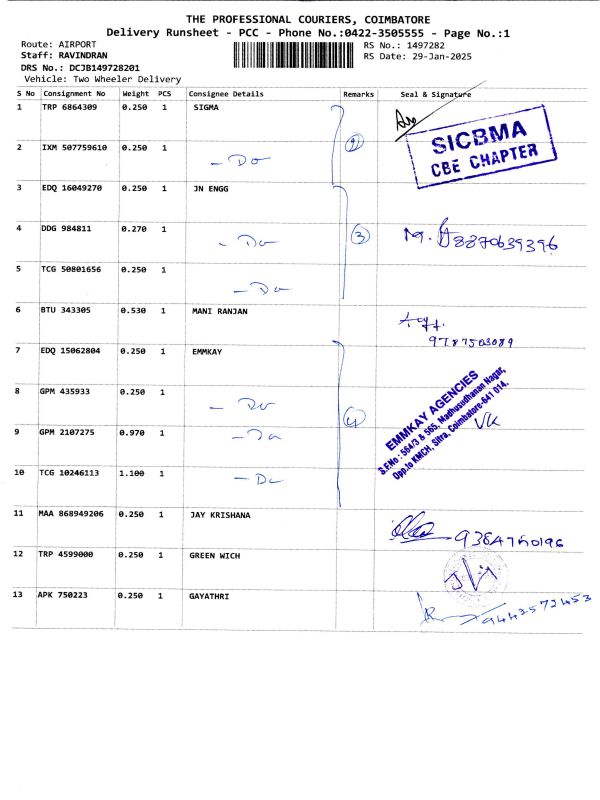 THE PROFESSIONAL COURIERS, COIMBATORE
Delivery Runsheet - PCC - Phone No.:0422-3505555 - Page No.:1
Route: AIRPORT
RS No.: 1497282
Staff: RAVINDRAN
RS Date: 29-Jan-2025
DRS No.: DCJB149728201
Vehicle: Two Wheeler Delivery
S No Consignment No Weight PCS Consignee Details Remarks Seal & Signature
1 TRP 6864309 0.250 1 SIGMA
SICBMA
CBE CHAPTER
2 IXM 507759610 0.250 1 - Do 2
3 EDQ 16049270 0.250 1 JN ENGG
4 DDG 984811 0.270 1 - Do 3 8870639396
5 TCG 50801656 0.250 1 - Do
6 BTU 343305 0.530 1 MANI RANJAN
9787503089
7 EDQ 15062804 0.250 1 EMMKAY
8 GPM 435933 0.250 1 - Do 4
EMMKAY AGENCIES
S.F.No : 564/3 & 565, Madhusudhanan Nagar,
Opp.to KMCH, Sitra, Coimbatore-641 014.
VK
9 GPM 2107275 0.970 1 - Do
10 TCG 10246113 1.100 1 - Do
11 MAA 868949206 0.250 1 JAY KRISHANA
12 TRP 4599000 0.250 1 GREEN WICH
13 APK 750223 0.250 1 GAYATHRI
9443572453